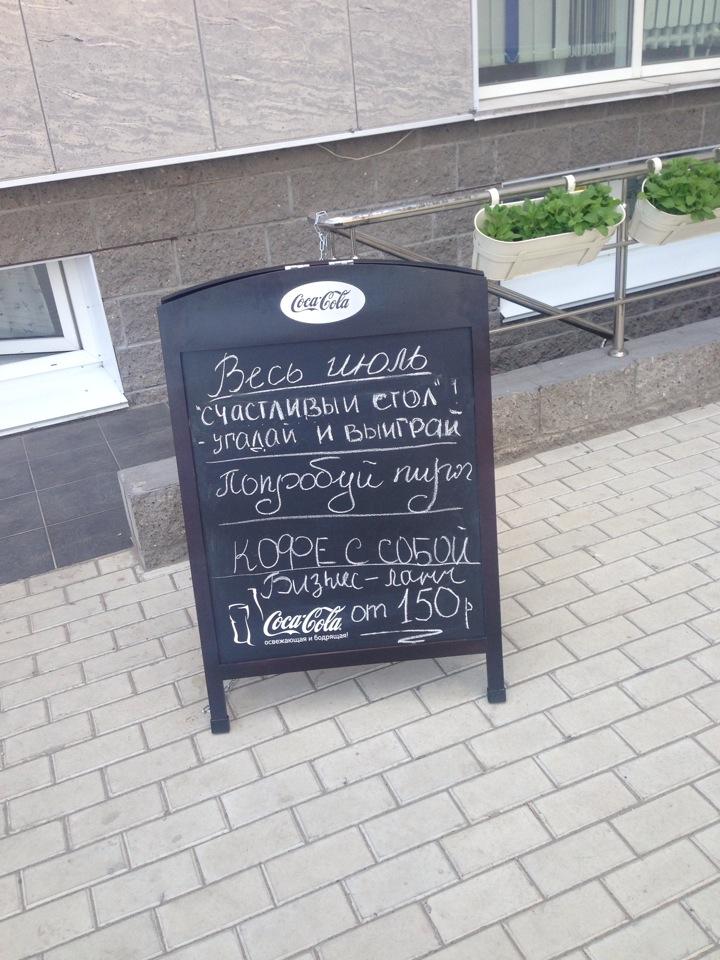 Coca-Cola
Весь июль
"счастливый стол"!
- угадай и выиграй
Попробуй пирог
КОФЕ С СОБОЙ
Бизнес-ланч
Coca-Cola от 150р
освежающая и бодрящая!